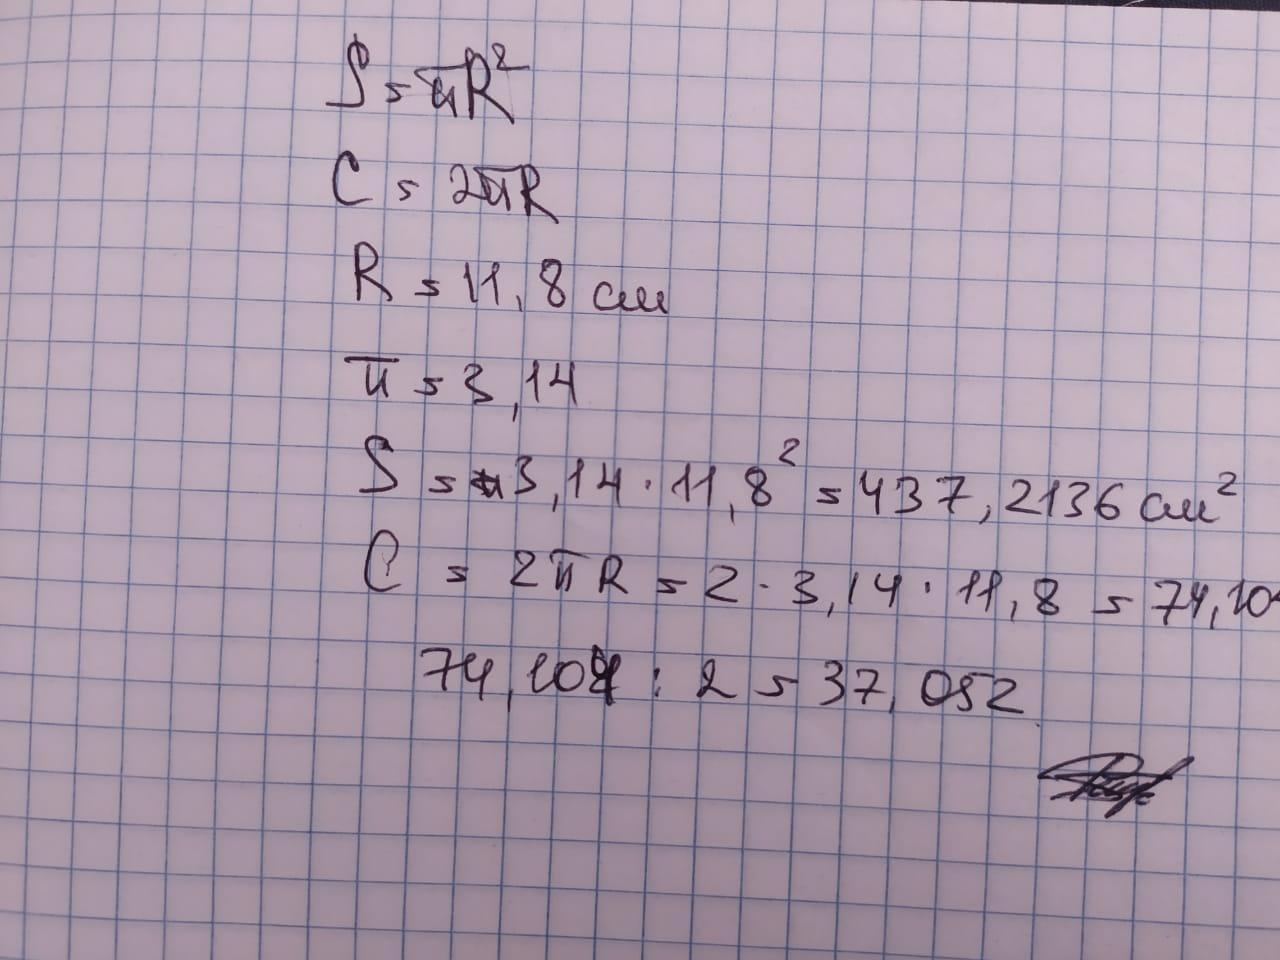 S = πR²
C = 2πR
R = 11,8 см
π = 3,14
S = 3,14 · 11,8² = 437,2136 см²
C = 2πR = 2 · 3,14 · 11,8 = 74,10
74,104 : 2 = 37,052